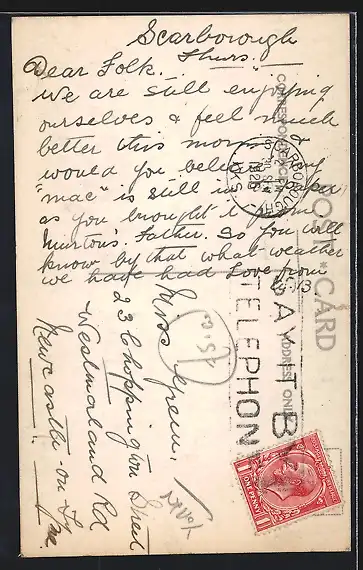 Scarborough
Thurs.
Dear Folk.
We are still enjoying
ourselves & feel much
better this morning
would you believe my
"mac" is still in paper
as you brought it from
Father. So you will
know by that what weather
we have had Love from
Miss Green,
23 Choppington Street
Westmorland Rd
Newcastle-on-Ty
SCARBOROUGH
1928
YORKS
SAY IT BY
TELEPHONE
POST CARD
CORRESPONDENCE
ADDRESS ONLY
ONE PENNY